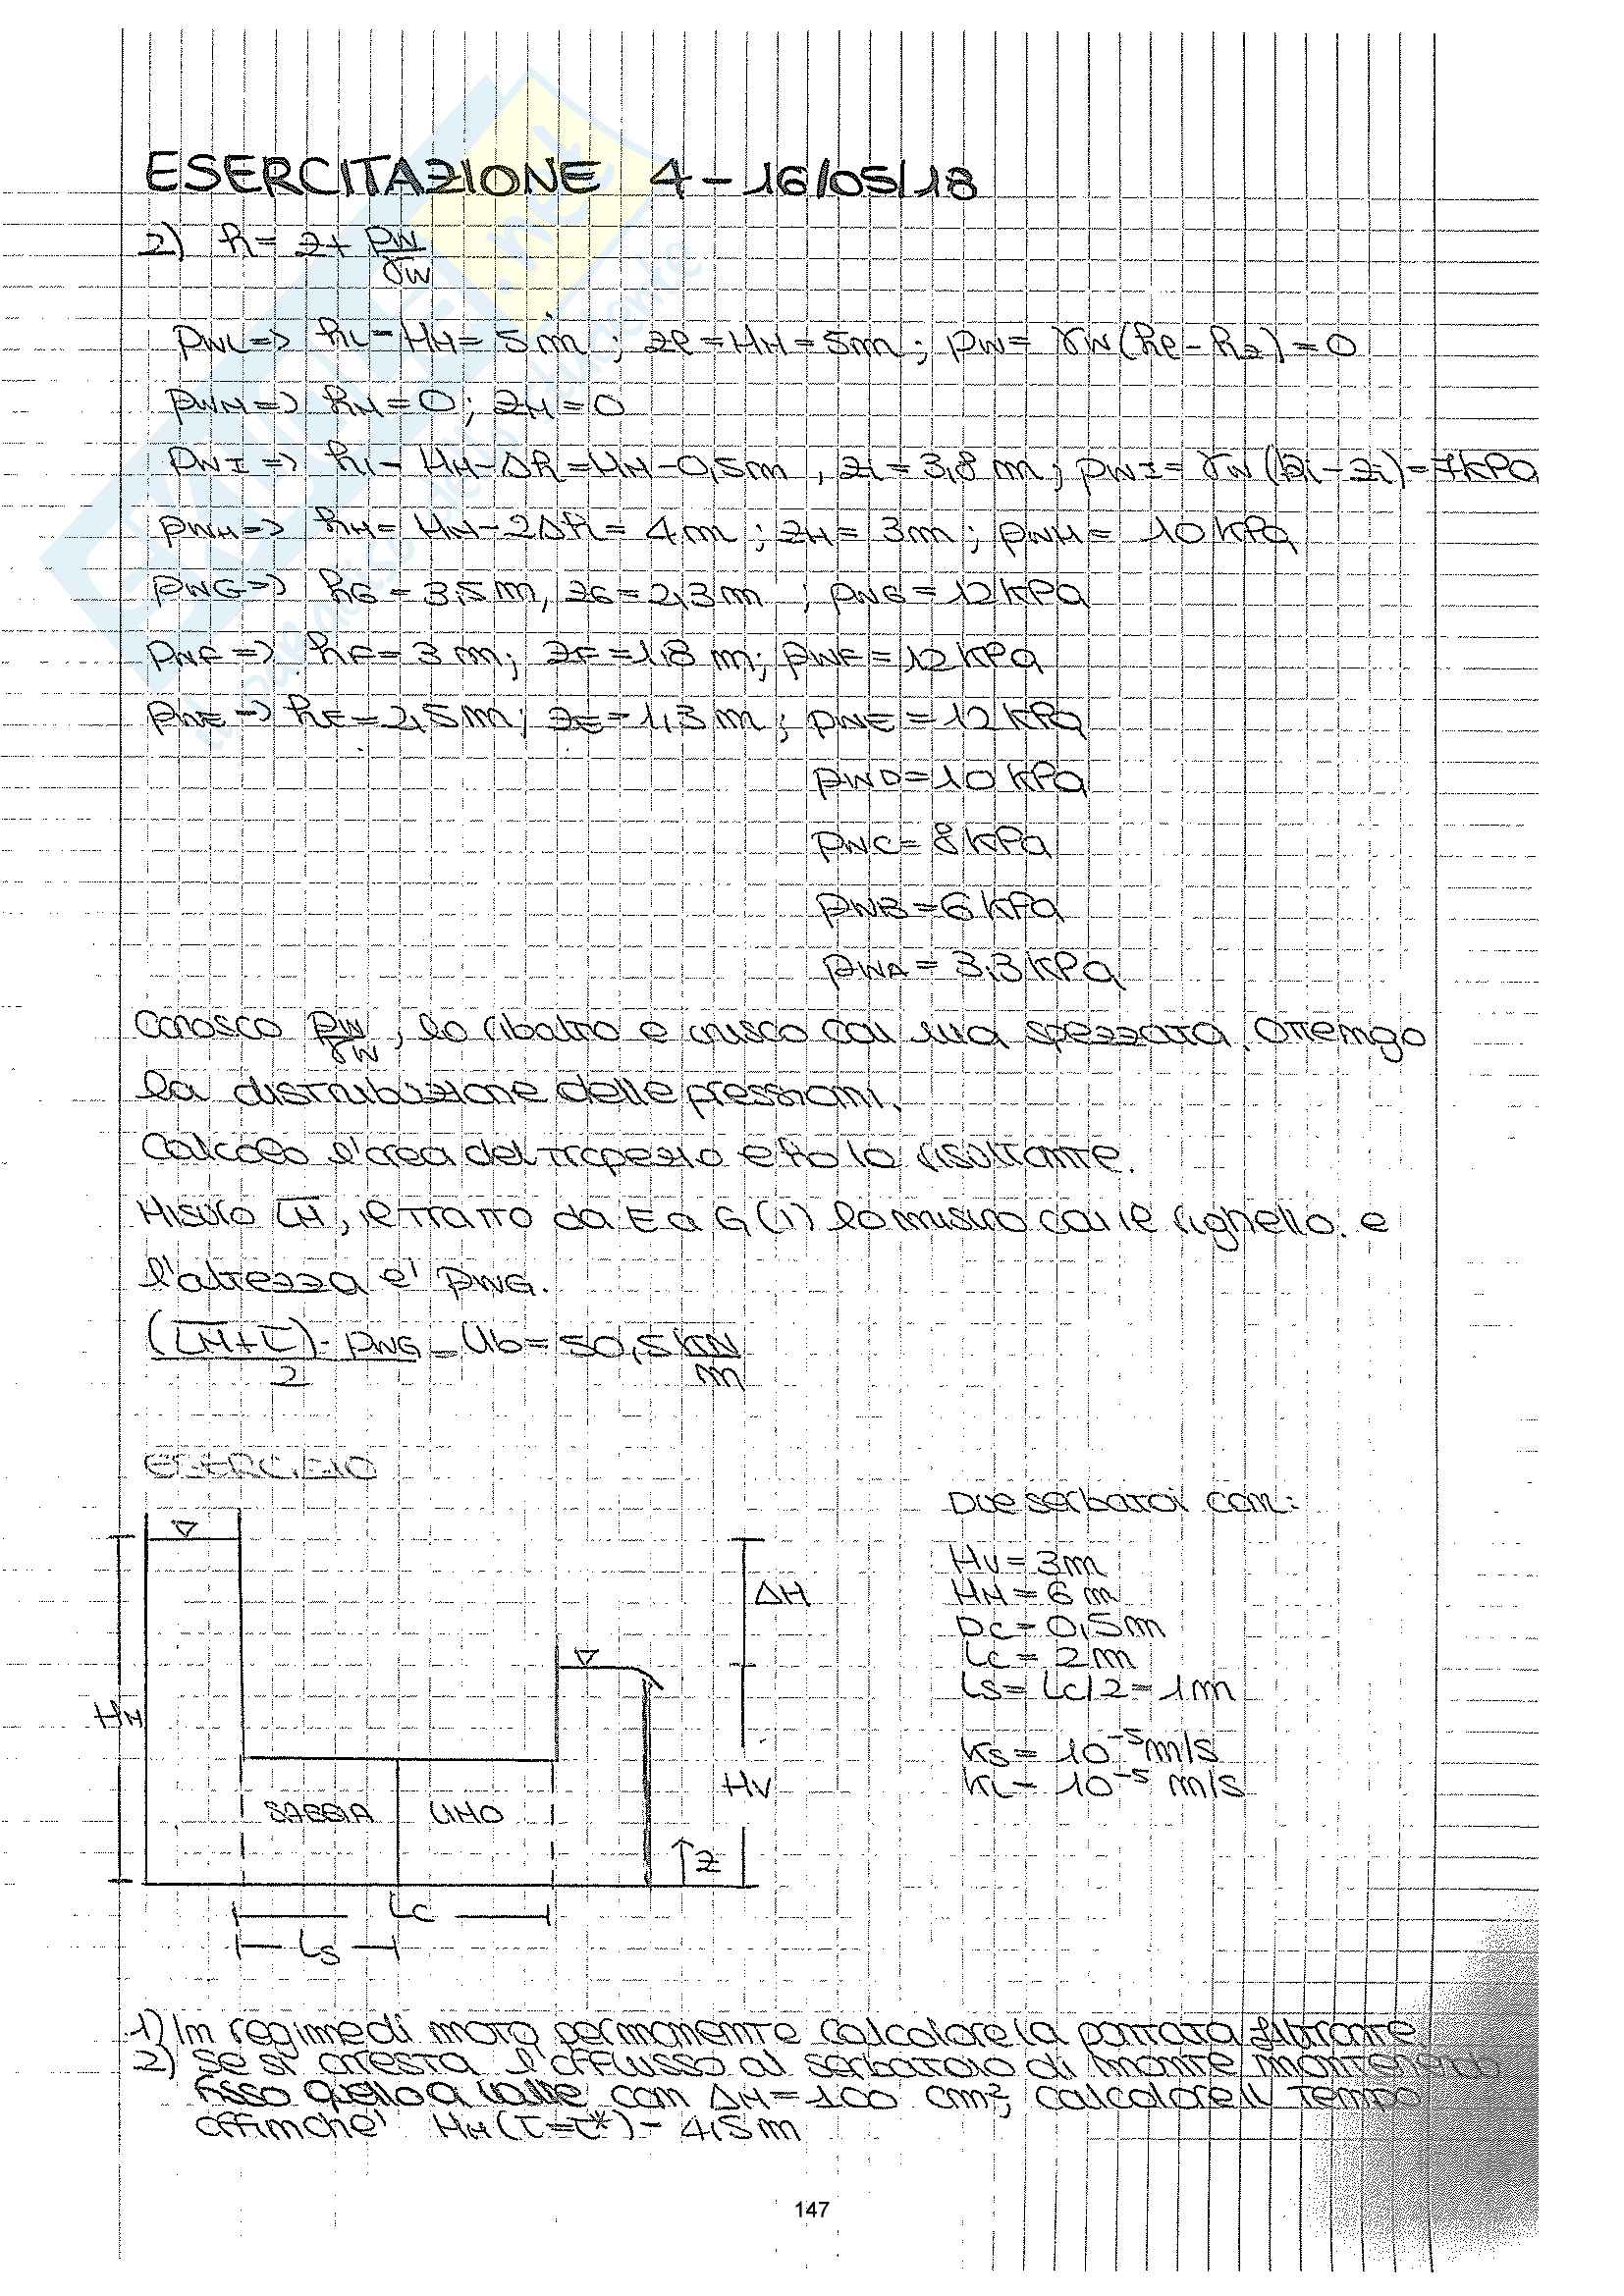 ESERCITAZIONE 4 - 16/05/18
2) h = z + pw/γw
pwL => hL = HM = 5 m ; zL = HM = 5m ; pw = γw (hL - hz) = 0
pWM => hM = 0 ; zM = 0
pwI => hI = HM - Δh = HM - 0,5m , zi = 3,8 m ; pwI = γw (hi - zi) = 7kPa
pwH => hH = HM - 2Δh = 4m ; zH = 3m ; pwH = 10 kPa
pwG => hG = 3,5 m, zG = 2,3 m ; pwG = 12 kPa
pwF => hF = 3 m; zF = 1,8 m; pwF = 12 kPa
pwE => hE = 2,5 m; zE = 1,3 m; pwE = 12 kPa
pwD = 10 kPa
pwC = 8 kPa
pwB = 6 kPa
pwA = 3,3 kPa
Conosco pw/γw, lo ribalto e unisco con una spezzata. Ottengo
la distribuzione delle pressioni.
Calcolo l'area del trapezio e ho la risultante.
Misuro LM, il tratto da E a G (l) lo misuro con il righello. e
l'altezza è pwG.
(LM + l)/2 · pwG = Ub = 50,5 kN/m
ESERCIZIO
Due serbatoi con:
Hv = 3m
HM = 6 m
Dc = 0,5m
Lc = 2m
Ls = Lc/2 = 1m
Ks = 10⁻⁵ m/s
KL = 10⁻⁵ m/s
ΔH
HM
Hv
SABBIA LIMO
z
Lc
Ls
1) In regime di moto permanente calcolare la portata filtrante
2) Se si arresta l'afflusso al serbatoio di monte mantenendo
fisso quello a valle, con ΔM = 100 cm², calcolare il tempo
affinche' HM (t=t*) = 4,5m
147